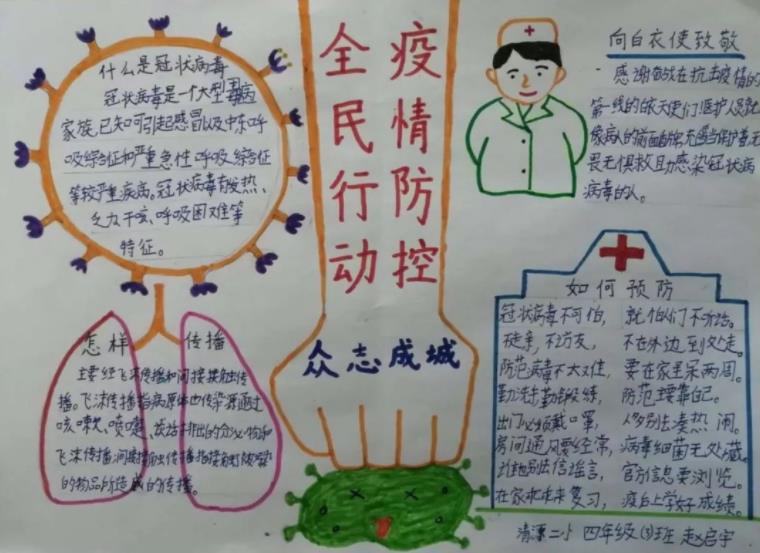 什么是冠状病毒
冠状病毒是一个大型病毒
家族,已知可引起感冒以及中东呼
吸综合征和严重急性呼吸综合征
等较严重疾病。冠状病毒有发热、
乏力干咳、呼吸困难等
特征。
全民行动
疫情防控
众志成城
向白衣使致敬
感谢奋战在抗击疫情的
第一线的白衣天使们医护人员就
畏无惧救助感染冠状病
病毒的人。
怎样传播
主要经飞沫传播和间接接触传
播。飞沫传播指病原体由传染源通过
咳嗽、喷嚏、谈话排出的分泌物和
飞沫传播,间接接触传播指接触被污染
的物品所造成的传播。
如何预防
冠状病毒不可怕, 就怕你们不听话。
不走亲,不访友, 不在外边到处走。
防范病毒不太难, 要在家里呆两周。
勤洗手勤锻炼, 防范主要靠自己。
出门必须戴口罩, 人多别去凑热闹。
房间通风要经常, 病毒细菌无处藏。
别信谣言, 官方信息要浏览。
在家 复习, 上学好成绩。
清源二小 四年级(3)班 赵启宇